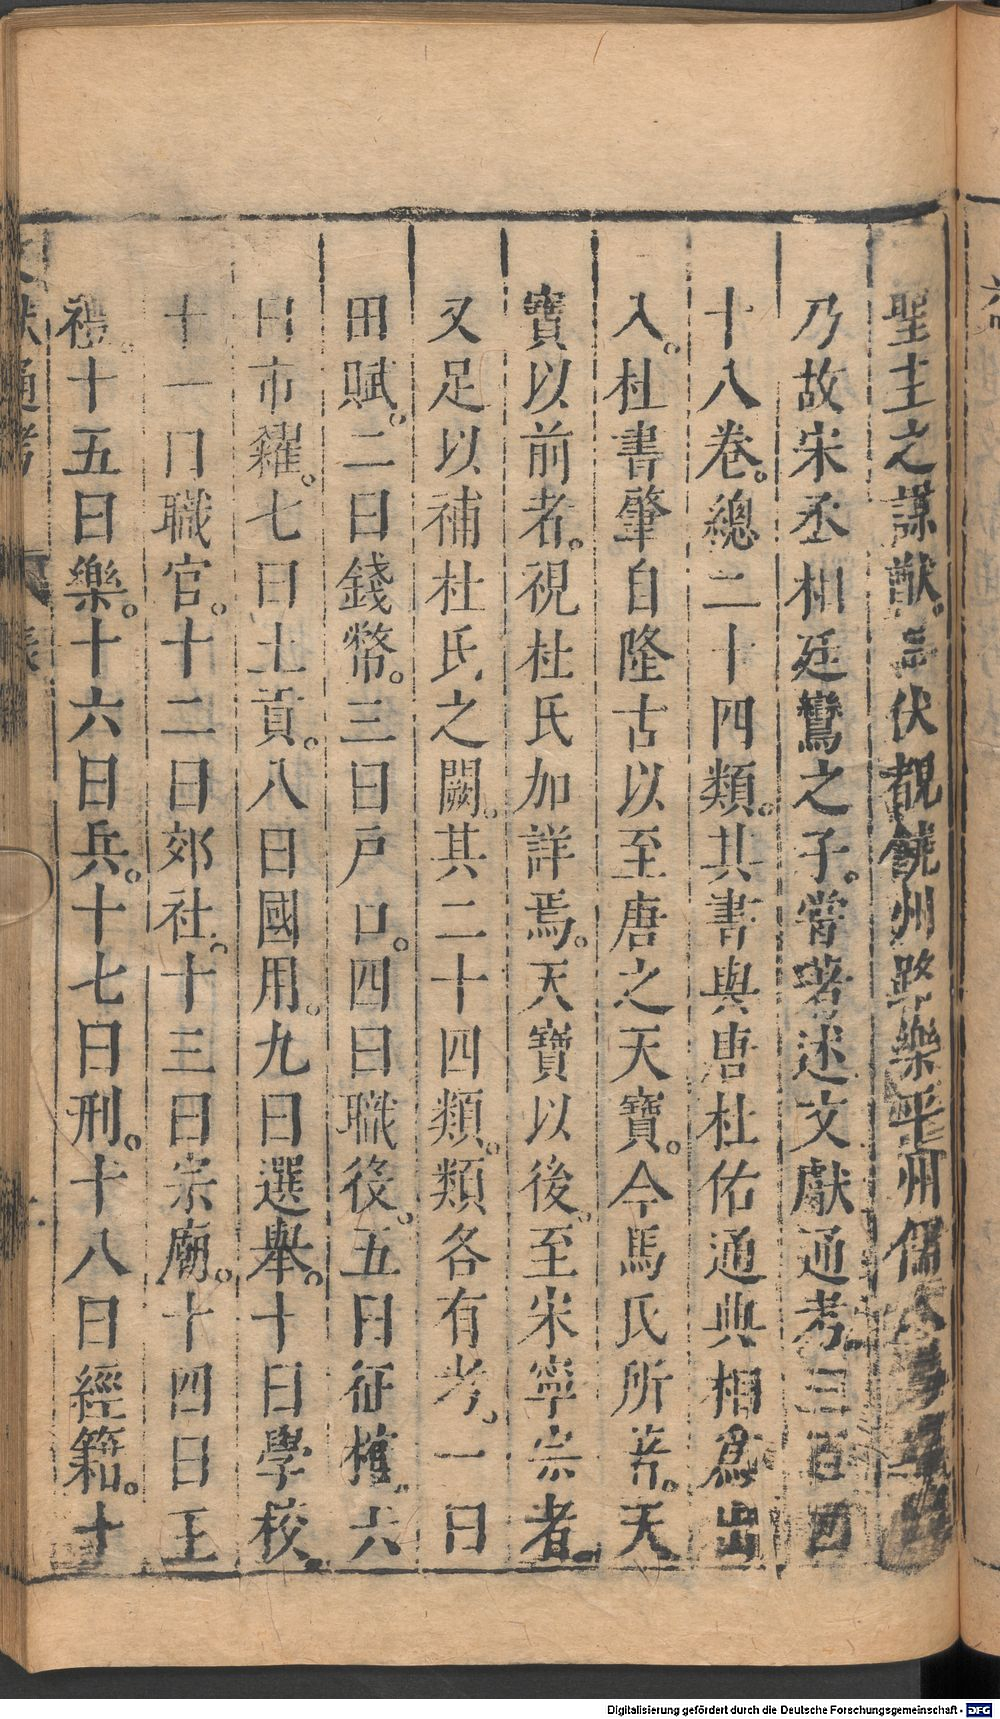 聖主之謀猷。伏覩饒州路樂平州儒人馬
乃故宋丞相廷鸞之子。嘗著述文獻通考三百四
十八卷。總二十四類。其書與唐杜佑通典相爲出
入。杜書肇自隆古以至唐之天寶。今馬氏所著。天
寶以前者。視杜氏加詳焉。天寶以後。至宋寧宗者。
又足以補杜氏之闕。其二十四類。類各有考。一曰
田賦。二曰錢幣。三曰戶口。四曰職役。五曰征榷。六
曰市糴。七曰土貢。八曰國用。九曰選舉。十曰學校。
十一曰職官。十二曰郊社。十三曰宗廟。十四曰王
禮。十五曰樂。十六曰兵。十七曰刑。十八曰經籍。十
文獻通考 表
Digitalisierung gefördert durch die Deutsche Forschungsgemeinschaft - DFG